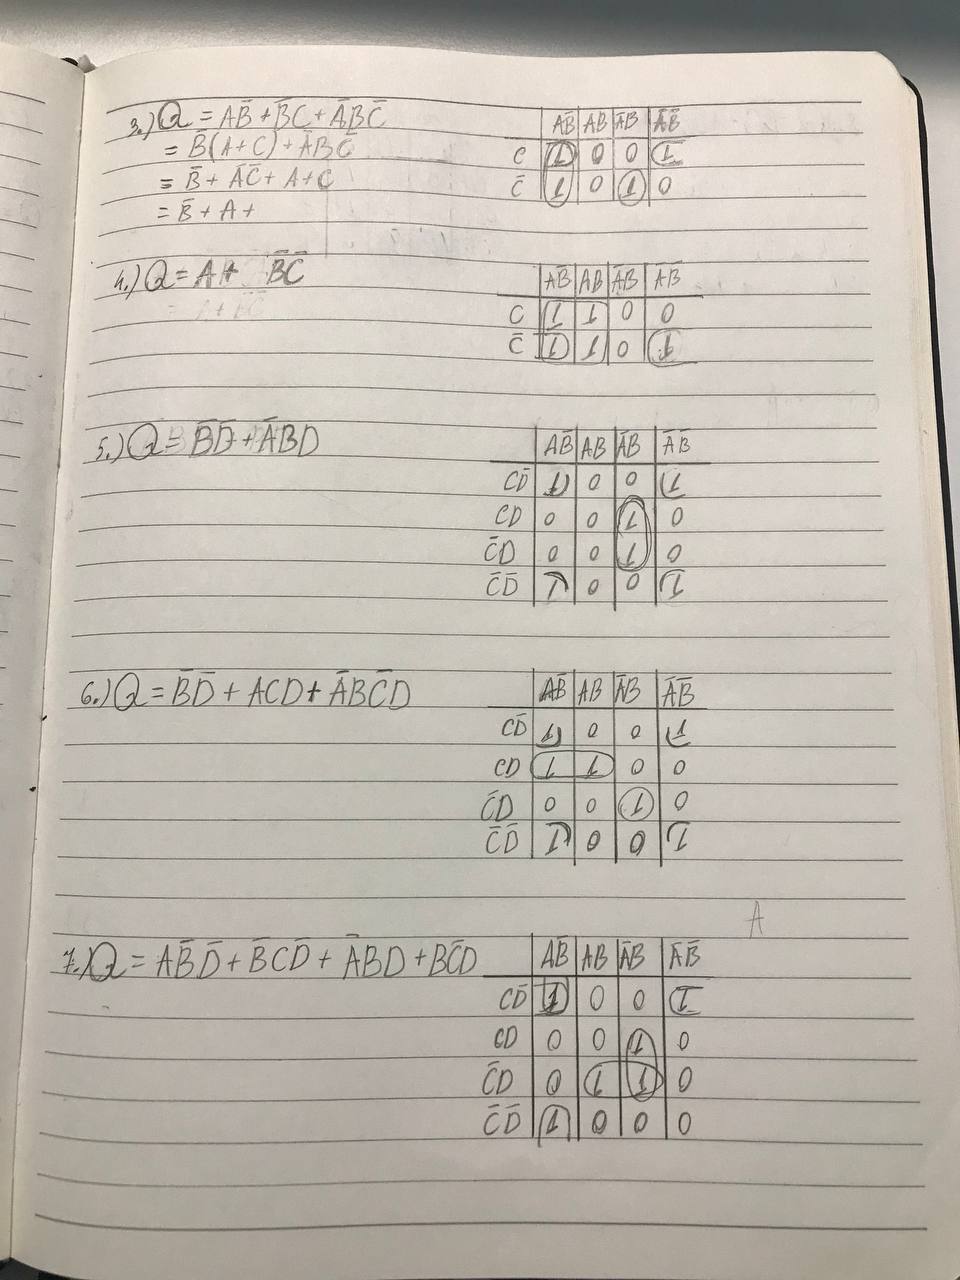 3.) Q = AB̅ + B̅C + A̅BC̅
= B̅(A+C) + A̅BC̅
= B̅ + A̅C̅ + A + C
= B̅ + A +
AB̅ AB A̅B A̅B̅
C 1 0 0 1
C̅ 1 0 1 0
4.) Q = A + B̅C̅
AB̅ AB A̅B A̅B̅
C 1 1 0 0
C̅ 1 1 0 1
5.) Q = B̅D̅ + A̅BD
AB̅ AB A̅B A̅B̅
CD̅ 1 0 0 1
CD 0 0 1 0
C̅D 0 0 1 0
C̅D̅ 1 0 0 1
6.) Q = B̅D̅ + ACD + A̅BC̅D
AB̅ AB A̅B A̅B̅
CD̅ 1 0 0 1
CD 1 1 0 0
C̅D 0 0 1 0
C̅D̅ 1 0 0 1
A
7.) Q = AB̅D̅ + B̅CD̅ + A̅BD + BC̅D
AB̅ AB A̅B A̅B̅
CD̅ 1 0 0 1
CD 0 0 1 0
C̅D 0 1 1 0
C̅D̅ 1 0 0 0